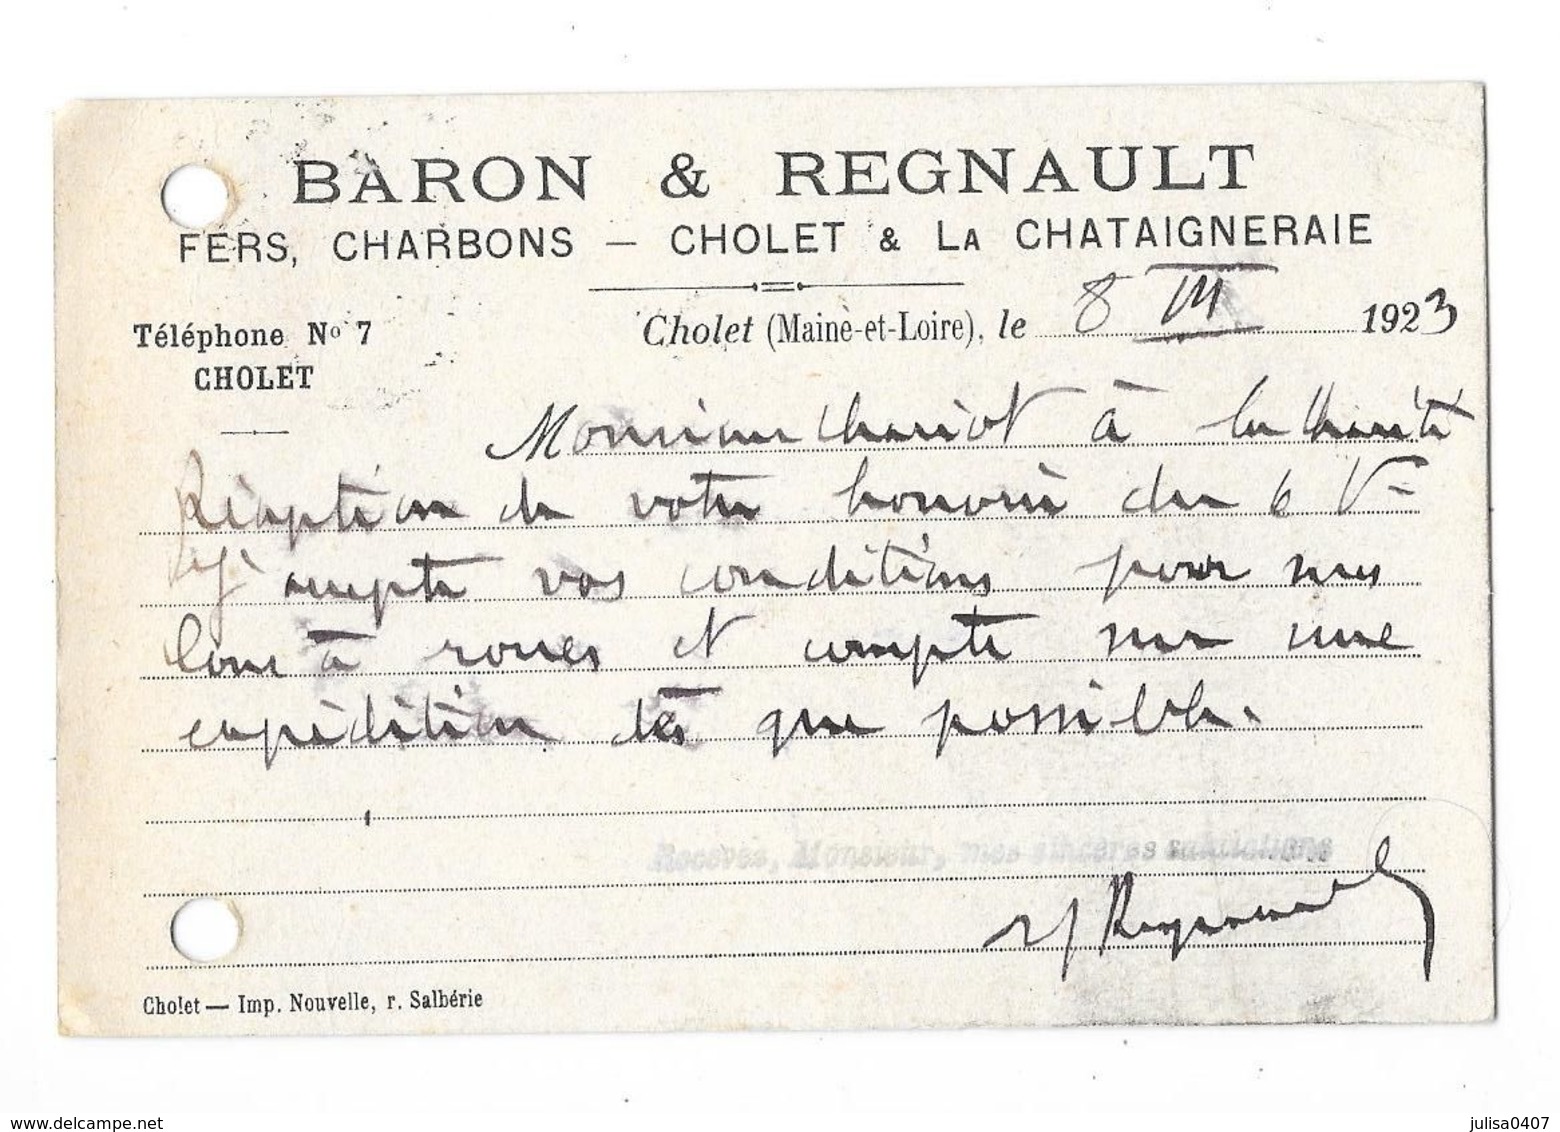 BARON & REGNAULT
FERS, CHARBONS — CHOLET & LA CHATAIGNERAIE
Téléphone No 7
CHOLET
Cholet (Maine-et-Loire), le 8 III 1923
Monsieur Chariot à la Charité
Réception de votre honorée du 6
J'accepte vos conditions pour
à roues et compte sur une
expédition dès que possible.
Recevez, Monsieur, mes sincères salutations
Regnault
Cholet — Imp. Nouvelle, r. Salbérie
julisa0407